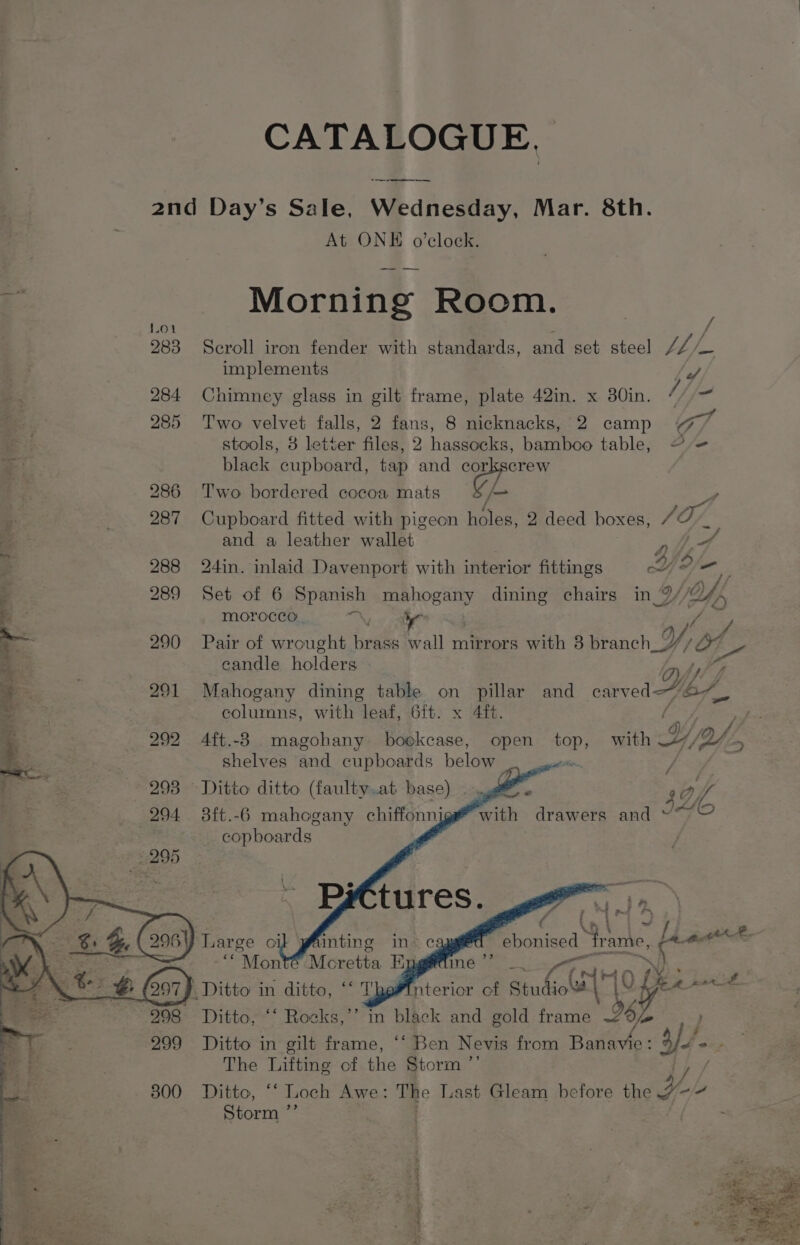 CATALOGUE.
2nd Day's Sale, Wednesday, Mar. 8th.
At ONE o'clock.
Morning Room.
Lot
283 Scroll iron fender with standards, and set steel
implements
284 Chimney glass in gilt frame, plate 42in. x 30in.
285 Two velvet falls, 2 fans, 8 nicknacks, 2 camp
stools, 3 letter files, 2 hassocks, bamboo table,
black cupboard, tap and corkscrew
286 Two bordered cocoa mats
287 Cupboard fitted with pigeon holes, 2 deed boxes,
and a leather wallet
288 24in. inlaid Davenport with interior fittings
289 Set of 6 Spanish mahogany dining chairs in
morocco
290 Pair of wrought brass wall mirrors with 3 branch
candle holders
291 Mahogany dining table on pillar and carved
columns, with leaf, 6ft. x 4ft.
292 4ft.-3 magohany bookcase, open top, with
shelves and cupboards below
293 Ditto ditto (faulty at base)
294 3ft.-6 mahogany chiffonnier with drawers and
copboards
295
Pictures.
296 Large oil painting in ebonised frame,
"Monte Moretta Engadine"
297 Ditto in ditto, "The Interior of Studio"
298 Ditto, "Rocks," in black and gold frame
299 Ditto in gilt frame, "Ben Nevis from Banavie:
The Lifting of the Storm"
300 Ditto, "Loch Awe: The Last Gleam before the
Storm"